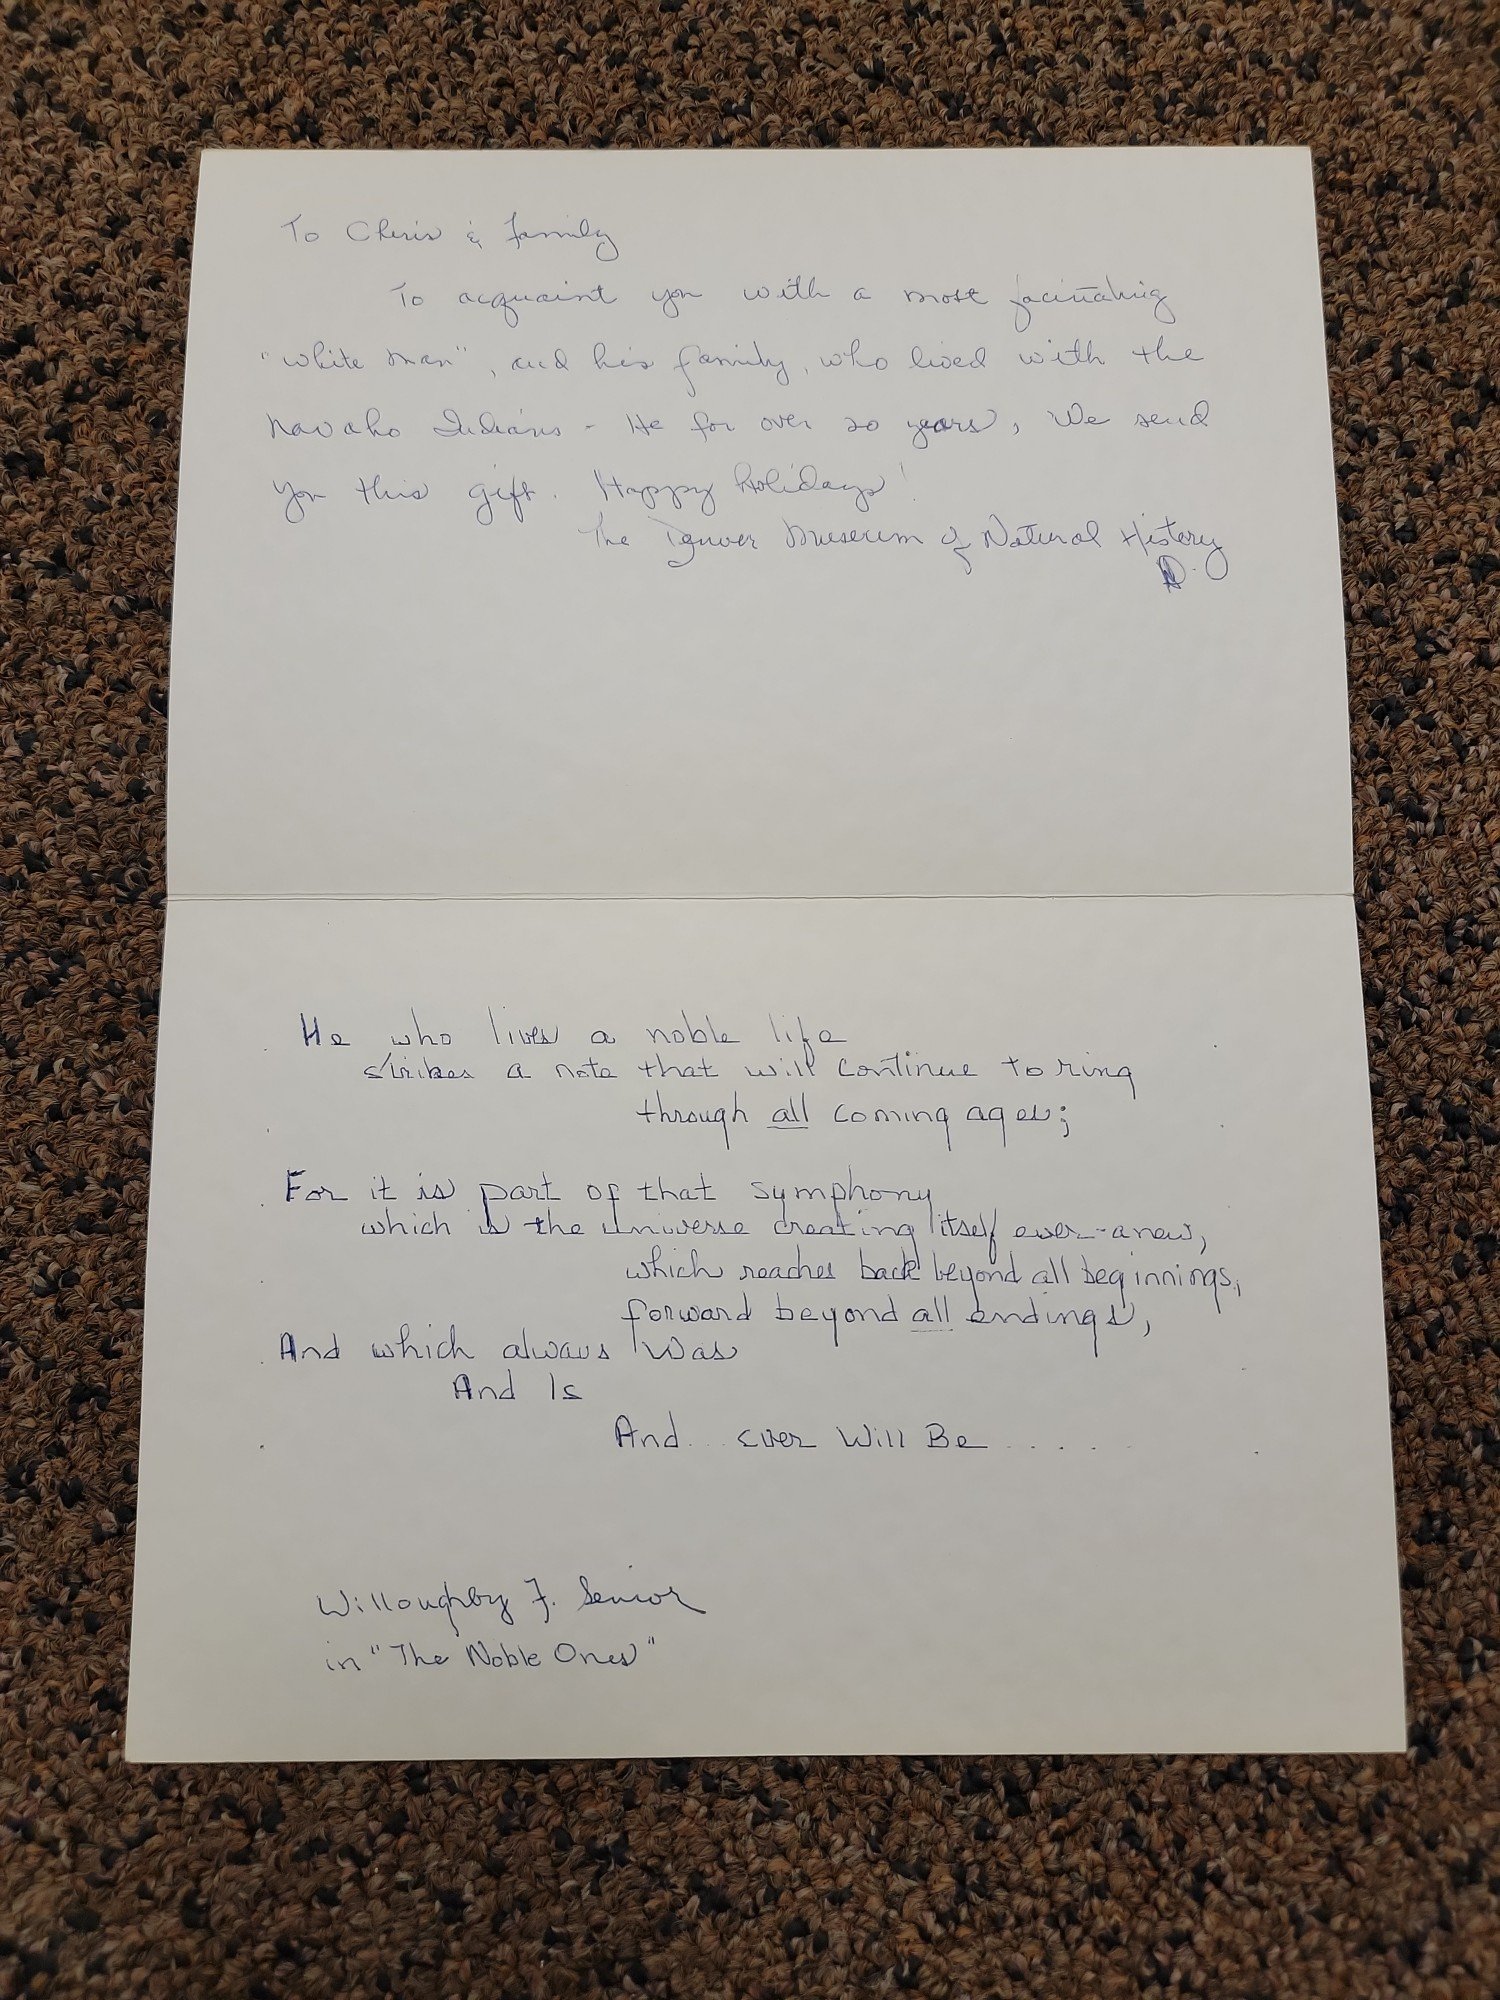 To Chris & Family
To acquaint you with a most facinating
"white man", and his family, who lived with the
Navaho Indians - He for over 20 years, We send
you this gift. Happy Holidays!
The Denver Museum of Natural History
He who lives a noble life
strikes a note that will continue to ring
through all coming ages;
For it is part of that symphony
which is the universe creating itself ever-anew,
which reaches back beyond all beginnings,
forward beyond all endings,
And which always Was
And Is
And... ever Will Be.....
Willoughby F. Senior
in "The Noble Ones"